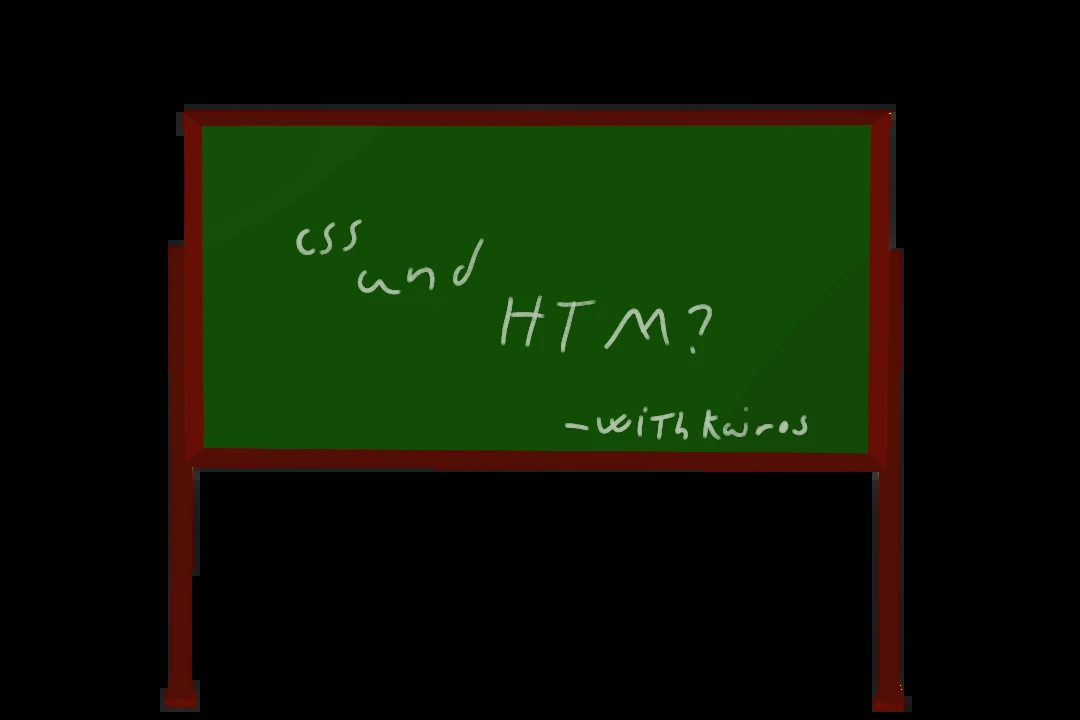 css
and
HTM?
-with kairos